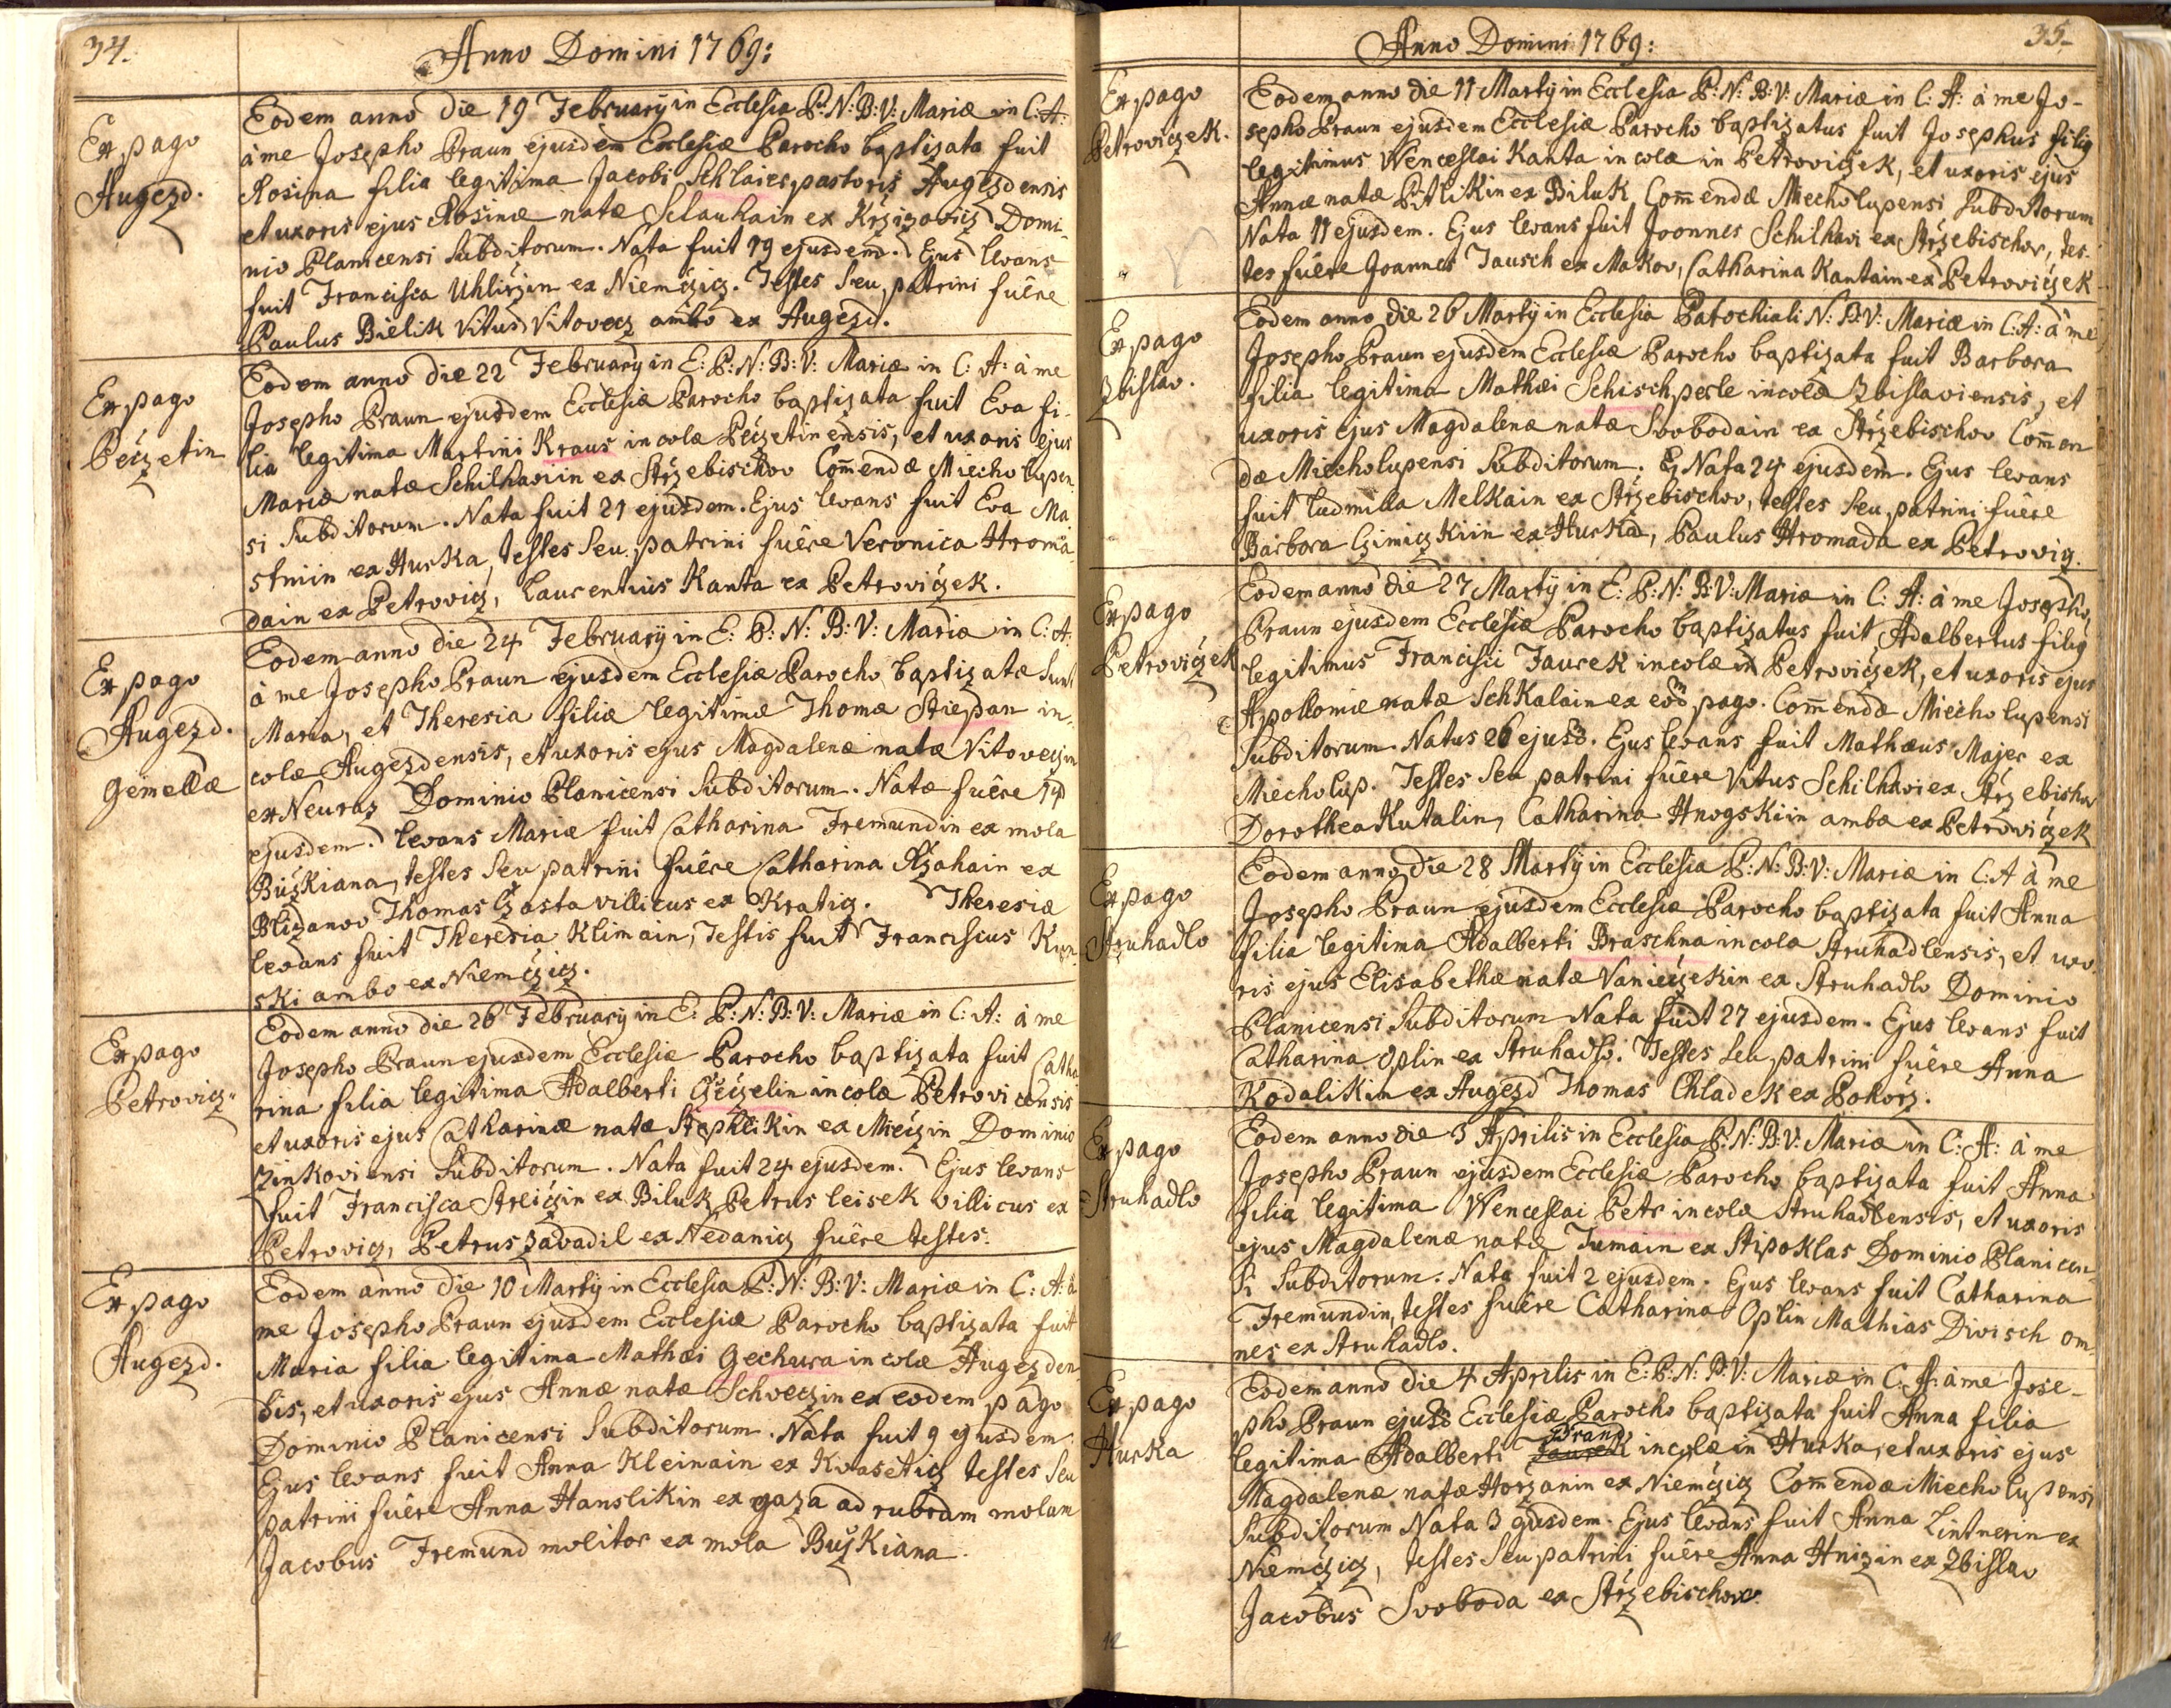 34.
Anno Domini 1769:
Ex pago
Augezd.
Eodem anno die 19 February in Ecclesia P: N: B: V: Mariæ in C: A:
à me Josepho Praun ejusdem Ecclesiæ Parocho baptizata fuit
Rosina filia legitima Jacobi Schlaier pastoris Augezdensis
et uxoris ejus Rosinæ natæ Slauhain ex Krzizovicz Domi-
nio Planicensi Subditorum. Nata fuit 19 ejusdem. Ejus levans
fuit Francisca Uhlirzin ex Niemczicz. Testes Seu patrini fuêre
Paulus Bielik Vitus Vitovecz ambo ex Augezd.
Ex pago
Peczetin
Eodem anno die 22 February in E: P: N: B: V: Mariæ in C: A: à me
Josepho Praun ejusdem Ecclesiæ Parocho baptizata fuit Eva fi-
lia legitima Martini Kraus incolæ Peczetinensis, et uxoris ejus
Mariæ natæ Schilhavin ex Strzebischov Com̄endæ Miecholupen-
si Subditorum. Nata fuit 21 ejusdem. Ejus levans fuit Eva Ma
stniin ex Hurka, testes Seu patrini fuêre Veronica Hroma
dain ex Petrovicz, Laurentius Kanta ex Petroviczek.
Ex pago
Augezd.
Gemellæ
Eodem anno die 24 February in E: P: N: B: V: Mariæ in C: A:
à me Josepho Praun ejusdem Ecclesiæ Parocho baptizatæ Sunt
Maria, et Theresia filiæ legitimæ Thomæ Stiepan in-
colæ Augezdensis, et uxoris ejus Magdalenæ natæ Vitoveczin
ex Neuraz Dominio Planicensi Subditorum. Natæ fuêre 14
ejusdem. Levans Mariæ fuit Catharina Fremundin ex mola
Buzkiana, testes Seu patrini fuêre Catharina Rzahain ex
Blizanov Thomas Czasta villicus ex Kraticz. Theresiæ
levans fuit Theresia Klimain, Testis fuit Franciscus Kun-
ski ambo ex Niemczicz.
Ex pago
Petrovicz.
Eodem anno die 26 February in E: P: N: B: V: Mariæ in C: A: à me
Josepho Praun ejusdem Ecclesiæ Parocho baptizata fuit Catha
rina filia legitima Adalberti Czeczelin incolæ Petrovicensis
et uxoris ejus Catharinæ natæ Stephlikin ex Mieczin Dominio
Zinkoviensi Subditorum. Nata fuit 24 ejusdem. Ejus levans
fuit Francisca Streiczin ex Biluk Petrus Leisek villicus ex
Petrovicz, Petrus Zavadil ex Nedanicz fuêre testes.
Ex pago
Augezd.
Eodem anno die 10 Marty in Ecclesia P: N: B: V: Mariæ in C: A: à
me Josepho Praun ejusdem Ecclesiæ Parocho baptizata fuit
Maria filia legitima Mathæi Gechura incolæ Augezden-
sis, et uxoris ejus Annæ natæ Schveczin ex eodem pago
Dominio Planicensi Subditorum. Nata fuit 9 ejusdem.
Ejus levans fuit Anna Kleinain ex Kvaseticz testes Seu
patrini fuêre Anna Hanslikin ex gaza ad rubram molam
Jacobus Fremund molitor ex mola Buzkiana.
35.
Anno Domini 1769:
Ex pago
Petroviczek.
Eodem anno die 11 Marty in Ecclesia P: N: B: V: Mariæ in C: A: à me Jo-
sepho Praun ejusdem Ecclesiæ Parocho baptizatus fuit Josephus filiq
legitimus Wenceslai Kanta incolæ in Petroviczek, et uxoris ejus
Annæ natæ Pitlikin ex Biluk, Com̄endæ Miecholupensi Subditorum
Nata 11 ejusdem. Ejus levans fuit Joannes Schilhavi ex Strzebischov, tes-
tes fuêre Joannes Jausch ex Makov, Catharina Kantain ex Petroviczek
Ex pago
Zbislav.
Eodem anno die 26 Marty in Ecclesia Parochiali N: B: V: Mariæ in C: A: à me
Josepho Praun ejusdem Ecclesiæ Parocho baptizata fuit Barbora
filia legitima Mathæi Schischperle incolæ Zbislaviensis, et
uxoris ejus Magdalenæ natæ Svobodain ex Strzebischov Com̄en
dæ Miecholupensi Subditorum. Nata 24 ejusdem. Ejus levans
fuit Ludmilla Melkain ex Strzebischov, testes Seu patrini fuêre
Barbora Czimiczkiin ex Hurka, Paulus Hromada ex Petrovicz.
Ex pago
Petroviczek
Eodem anno die 27 Marty in E: P: N: B: V: Mariæ in C: A: à me Josepho
Praun ejusdem Ecclesiæ Parocho baptizatus fuit Adalbertus filiq
legitimus Francisci Jaurek incolæ in Petroviczek, et uxoris ejus
Apolloniæ natæ Schkalain ex eodm pago. Com̄endæ Miecholupensi
Subditorum. Natus 26 ejusd. Ejus levans fuit Mathæus Majer ex
Miecholup. Testes Seu patrini fuêre Vitus Schilhavi ex Strzebischov
Dorothea Kutalin, Catharina Hnogskiin ambæ ex Petroviczek
Ex pago
Struhadlo
Eodem anno die 28 Marty in Ecclesia P: N: B: V: Mariæ in C: A à me
Josepho Praun ejusdem Ecclesiæ Parocho baptizata fuit Anna
filia legitima Adalberti Braschna incola Struhadlensis, et uxo-
ris ejus Elisabethæ natæ Vaniczekin ex Struhadlo Dominio
Planicensi Subditorum Nata fuit 27 ejusdem. Ejus levans fuit
Catharina Oplin ex Struhadlo. Testes Seu patrini fuêre Anna
Kodalikin ex Augezd Thomas Chladek ex Pokorz.
Ex pago
Struhadlo
Eodem anno die 3 Aprilis in Ecclesia P: N: B: V: Mariæ in C: A: à me
Josepho Praun ejusdem Ecclesiæ Parocho baptizata fuit Anna
filia legitima Wenceslai Petr incolæ Struhadlensis, et uxoris
ejus Magdalenæ natæ Tumain ex Stipoklas Dominio Planicen-
si Subditorum. Nata fuit 2 ejusdem. Ejus levans fuit Catharina
Fremundin, testes fuêre Catharina Oplin Mathias Divisch om-
nes ex Struhadlo.
Ex pago
Hurka
Eodem anno die 4 Aprilis in E: P: N: B: V: Mariæ in C: A: à me Jose-
pho Praun ejusd Ecclesiæ Parocho baptizata fuit Anna filia
legitima Adalberti Jaurek incolæ in Hurka, et uxoris ejus
Magdalenæ natæ Horzanin ex Niemczicz Com̄endæ Miecholupensi
Subditorum Nata 3 ejusdem. Ejus levans fuit Anna Lintnerin ex
Niemczicz, testes Seu patrini fuêre Anna Hnizin ex Zbislav
Jacobus Svoboda ex Strzebischov